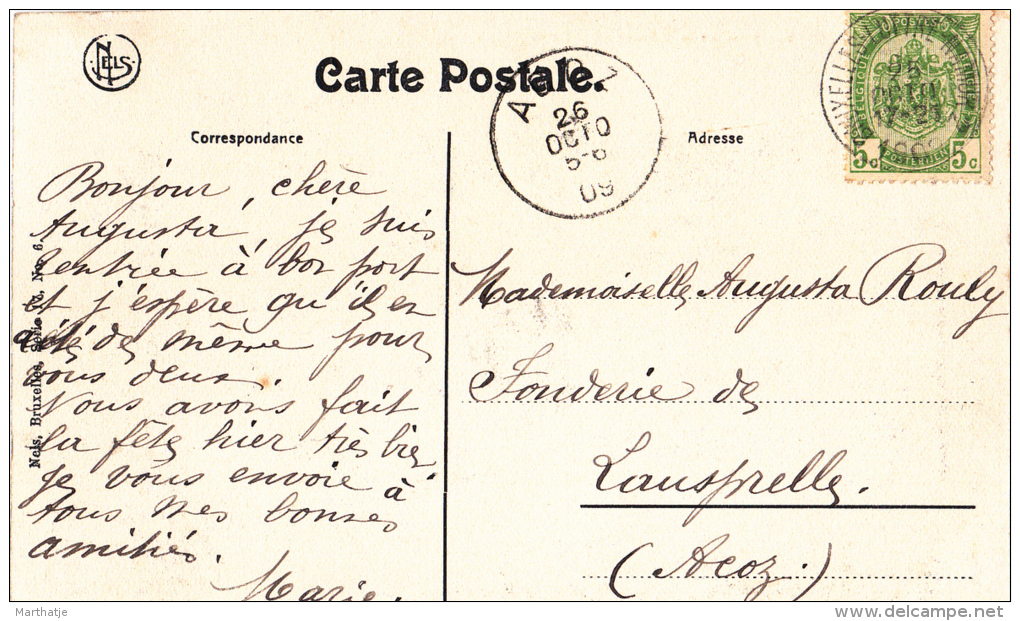 NELS
Carte Postale.
ACOZ
26
OCTO
5-6
09
POSTES
BELGIQUE
5c POSTERIJEN 5c
25
OCTO
Correspondance
Adresse
Bonjour, chère
Augusta, je suis
rentrée à bon port
et j'espère qu'il en
été de même pour
vous deux.
Nous avons fait
la fête hier très bien
je vous envoie à
tous mes bonnes
amitiés.
Marie.
Nels, Bruxelles, Serie No. 6.
Mademoiselle Augusta Rouly
Fonderie de
Lausprelle.
(Acoz.)
Marthatje
delcampe.net